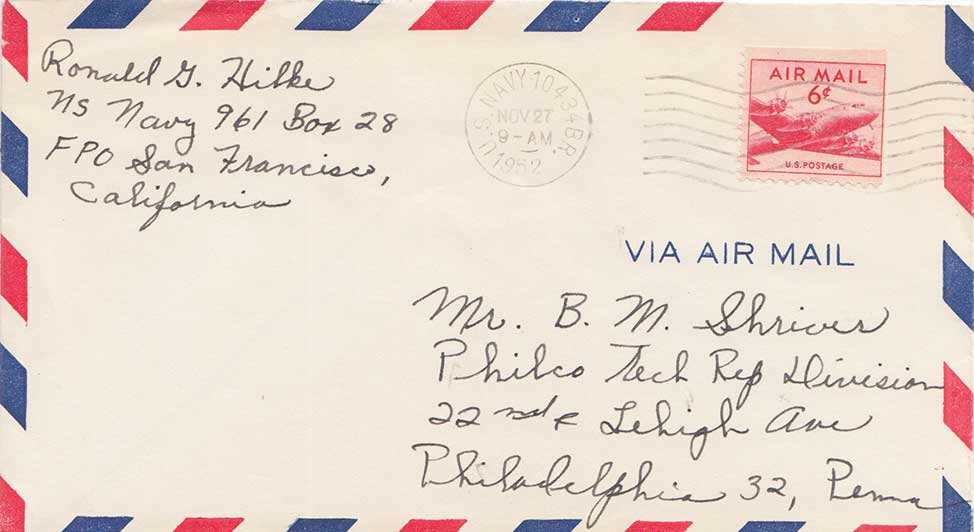 Ronald G. Hilke
Ns Navy 961 Box 28
FPO San Francisco,
California
U.S. NAVY 10434 BR.
NOV 27
9-AM
1952
AIR MAIL
6¢
U.S. POSTAGE
VIA AIR MAIL
Mr. B. M. Shriver
Philco Tech Rep Division
22nd & Lehigh Ave
Philadelphia 32, Penna